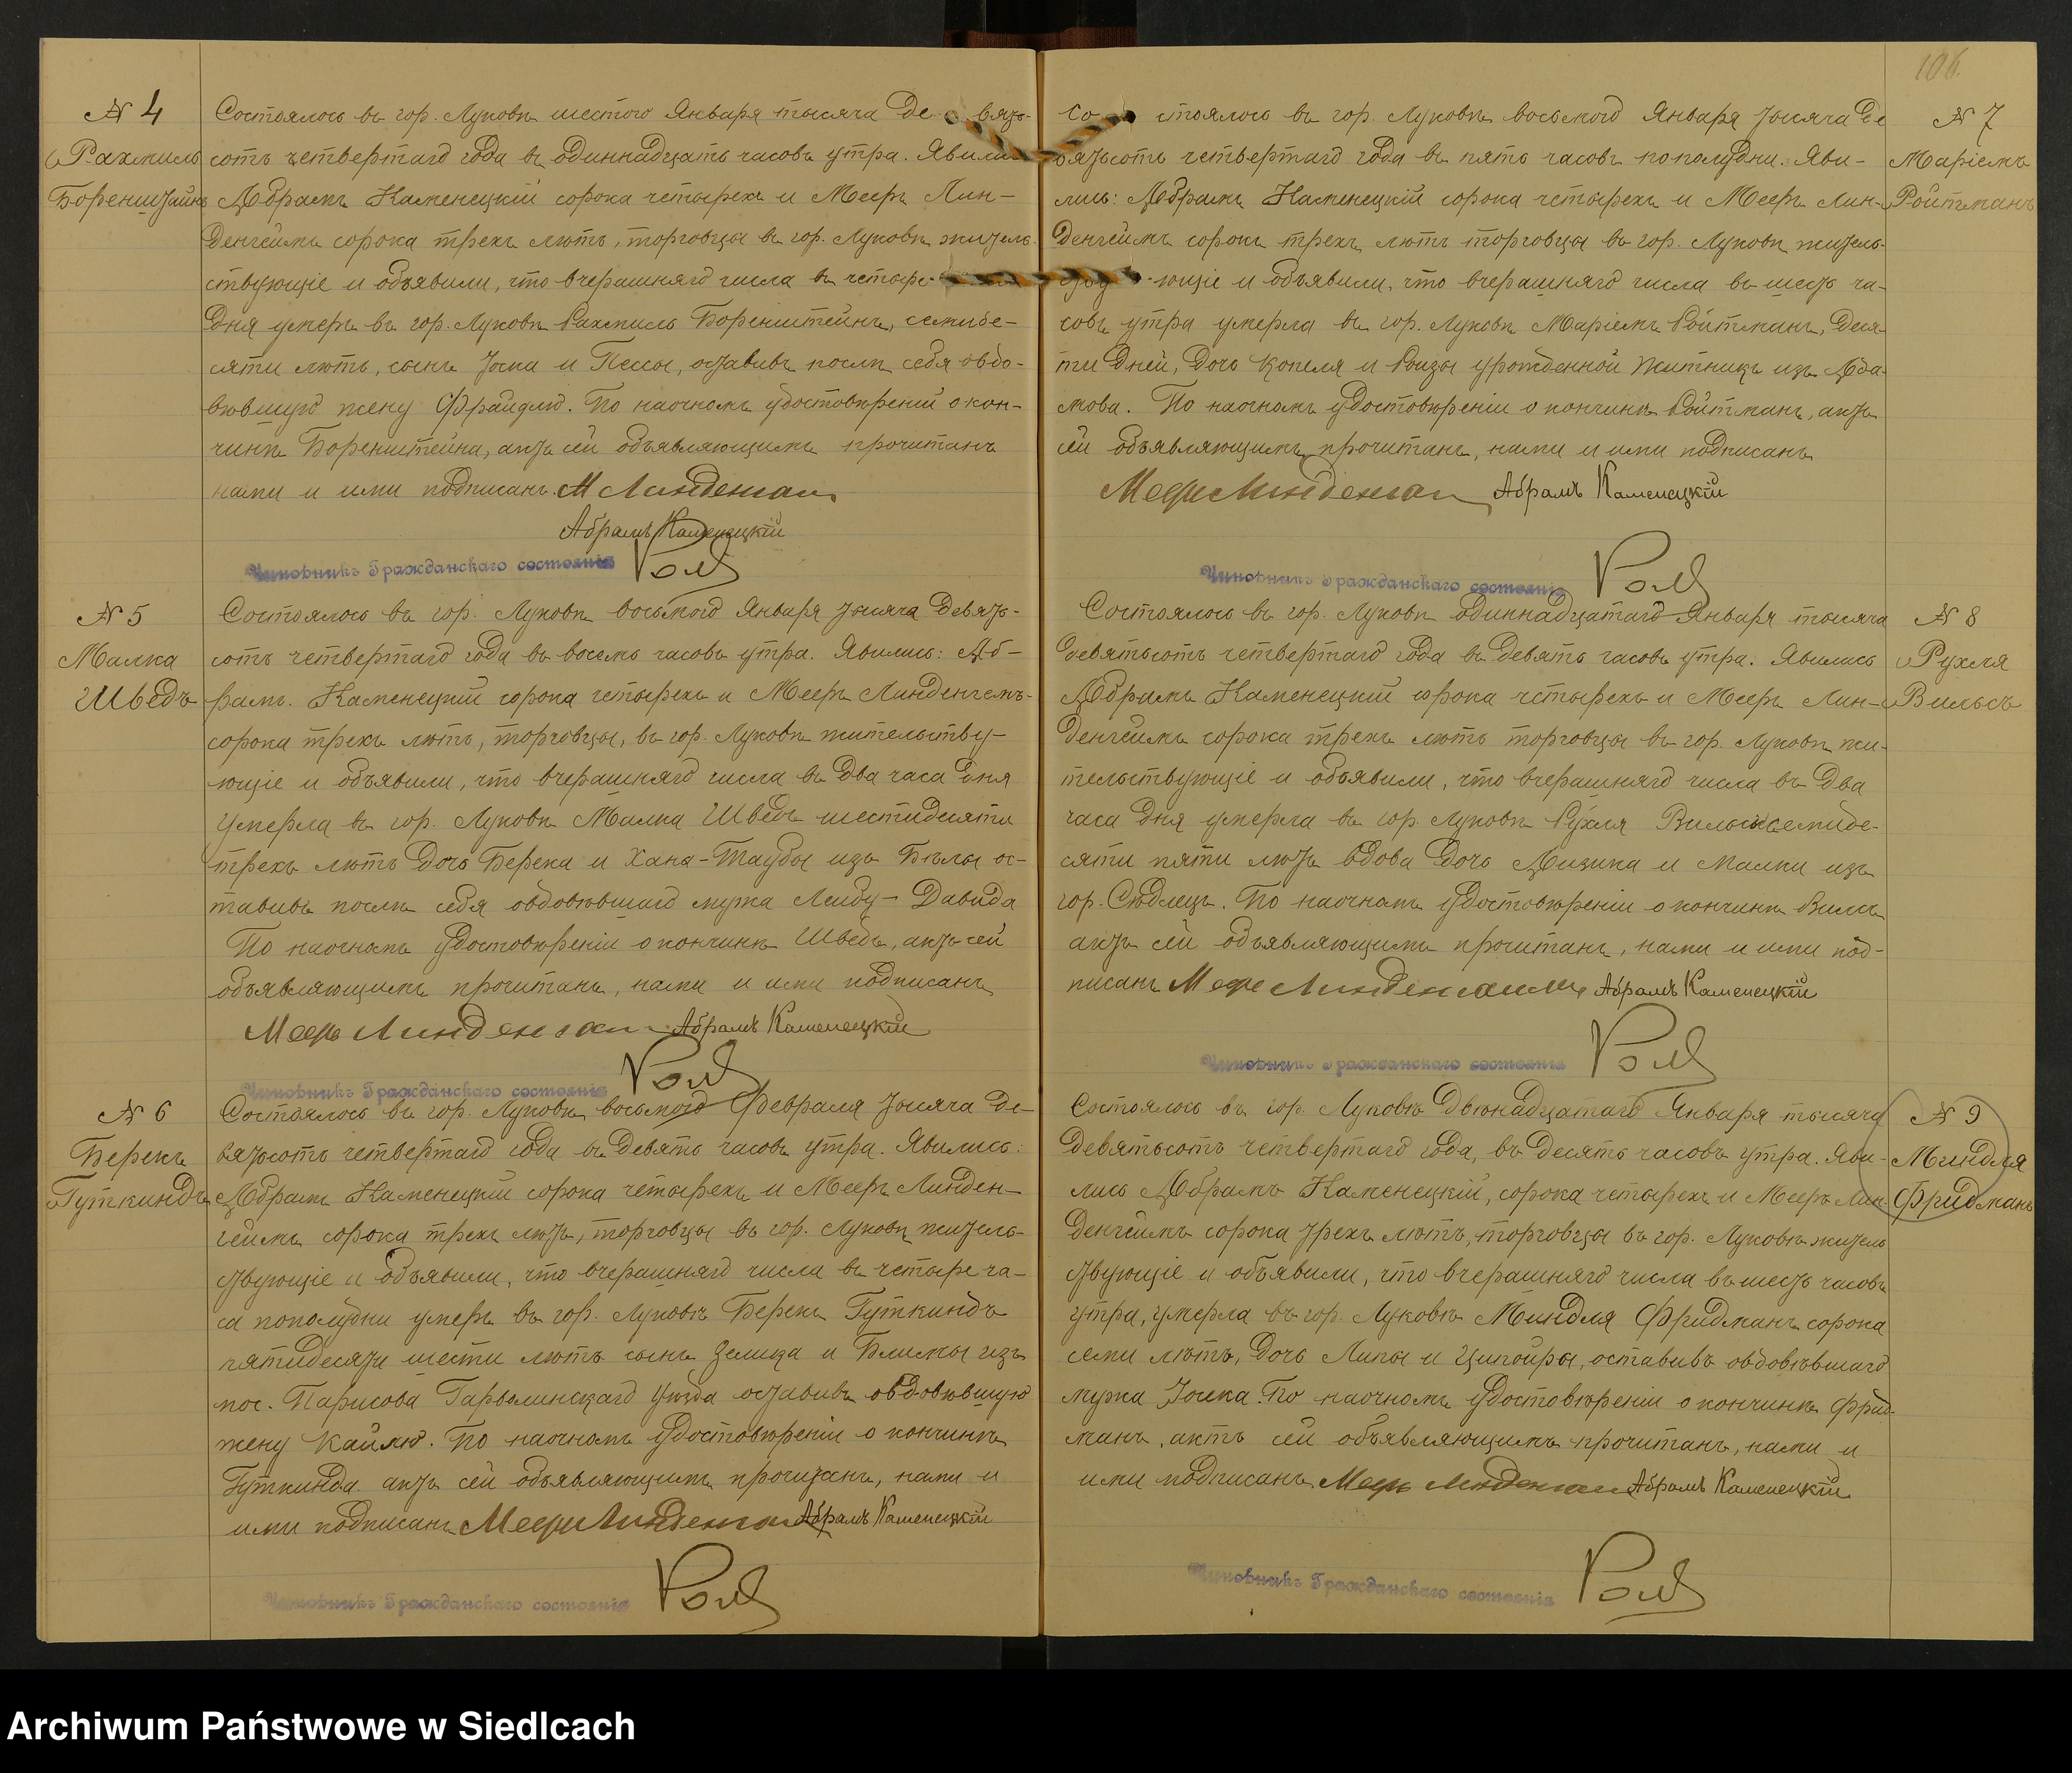 № 4
Рахмиль
Боренштайнъ
Состоялось въ гор. Луковѣ шестого Января тысяча де вять-
сотъ четвертаго года въ одиннадцать часовъ утра. Явили
Абрамъ Каменецкій сорока четырехъ и Мееръ Лин-
денгеймъ сорока трехъ лѣтъ, торговцы въ гор. Луковѣ житель-
ствующіе и объявили, что вчерашняго числа въ четыре
дня умеръ въ гор. Луковѣ Рахмиль Боренштейнъ, семиде-
сяти лѣтъ, сынъ Іоска и Пессы, оставивъ послѣ себя овдо-
вѣвшую жену Фрайдлю. По наочномъ удостовѣреніи о кон-
чинѣ Боренштейна, актъ сей объявляющимъ прочитанъ
нами и ими подписанъ. М Линденгаим
Абрамъ Каменецкій
Чиновникъ Гражданскаго состоянія
№ 5
Малка
Шведъ
Состоялось въ гор. Луковѣ восьмого Января тысяча девять-
сотъ четвертаго года въ восемь часовъ утра. Явились: Аб-
рамъ Каменецкій сорока четырехъ и Мееръ Линденгемъ-
сорока трехъ лѣтъ, торговцы, въ гор. Луковѣ жительству-
ющіе и объявили, что вчерашняго числа въ два часа дня
умерла въ гор. Луковѣ Малка Шведъ шестидесяти
трехъ лѣтъ дочь Берека и Хана-Таубы изъ Бѣлы ос-
тавивъ послѣ себя овдовѣвшаго мужа Лейбу-Давида
По наочномъ удостовѣреніи о кончинѣ Шведъ, актъ сей
объявляющимъ прочитанъ, нами и ими подписанъ
Мееръ Линденгаим Абрамъ Каменецкій
Чиновникъ Гражданскаго состоянія
№ 6
Берекъ
Гуткиндъ
Состоялось въ гор. Луковѣ восьмого Февраля тысяча де-
вятьсотъ четвертаго года въ девять часовъ утра. Явились:
Абрамъ Каменецкій сорока четырехъ и Мееръ Линден-
геимъ сорока трехъ лѣтъ, торговцы въ гор. Луковѣ житель-
ствующіе и объявили, что вчерашняго числа въ четыре ча-
са пополудни умеръ въ гор. Луковѣ Берекъ Гуткиндъ
пятидесяти шести лѣтъ сынъ Зелика и Блимы изъ
пос. Парисова Гарволинскаго уѣзда оставивъ овдовѣвшую
жену Кайлю. По наочномъ удостовѣреніи о кончинѣ
Гуткинда актъ сей объявляющимъ прочитанъ, нами и
ими подписанъ Мееръ Линденгаим Абрамъ Каменецкій
Чиновникъ Гражданскаго состоянія
106.
№ 7
Маріемъ
Ройтманъ
Со стоялось въ гор. Луковѣ восьмого Января тысяча де
вятьсотъ четвертаго года въ пять часовъ пополудни. Яви-
лись: Абрамъ Каменецкій сорока четырехъ и Мееръ Лин-
денгеймъ сорока трехъ лѣтъ торговцы въ гор. Луковѣ житель-
ству -ющіе и объявили, что вчерашняго числа въ шесть ча-
совъ утра умерла въ гор. Луковѣ Маріемъ Ройтманъ, деся-
ти дней, дочь Копеля и Ройзы урожденной Житникъ изъ Ада-
мова. По наочномъ удостовѣреніи о кончинѣ Ройтманъ, актъ
сей объявляющимъ прочитанъ, нами и ими подписанъ
Мееръ Линденгаим Абрамъ Каменецкій
Чиновникъ Гражданскаго состоянія
№ 8
Рухля
Вильсъ
Состоялось въ гор. Луковѣ одиннадцатаго Января тысяча
девятьсотъ четвертаго года въ девять часовъ утра. Явились
Абрамъ Каменецкій сорока четырехъ и Мееръ Лин-
денгеймъ сорока трехъ лѣтъ торговцы въ гор. Луковѣ жи-
тельствующіе и объявили, что вчерашняго числа въ два
часа дня умерла въ гор. Луковѣ Рухля Вильсъ семиде-
сяти пяти лѣтъ вдова дочь Айзика и Малки изъ
гор. Сѣдлецъ. По наочномъ удостовѣреніи о кончинѣ Вильсъ
актъ сей объявляющимъ прочитанъ, нами и ими под-
писанъ Мееръ Линденгаим Абрамъ Каменецкій
Чиновникъ Гражданскаго состоянія
№ 9
Миндля
Фридманъ
Состоялось въ гор. Луковѣ двѣнадцатаго Января тысяча
девятьсотъ четвертаго года, въ десять часовъ утра. Яви-
лись Абрамъ Каменецкій, сорока четырехъ и Мееръ Лин-
денгеймъ сорока трехъ лѣтъ, торговцы въ гор. Луковѣ житель
ствующіе и объявили, что вчерашняго числа въ шесть часовъ
утра, умерла въ гор. Луковѣ Миндля Фридманъ сорока
семи лѣтъ, дочь Липы и Ципойры, оставивъ овдовѣвшаго
мужа Іоска. По наочномъ удостовѣреніи о кончинѣ Фрид-
манъ, актъ сей объявляющимъ прочитанъ, нами и
ими подписанъ Мееръ Линденгаим Абрамъ Каменецкій
Чиновникъ Гражданскаго состоянія
Archiwum Państwowe w Siedlcach